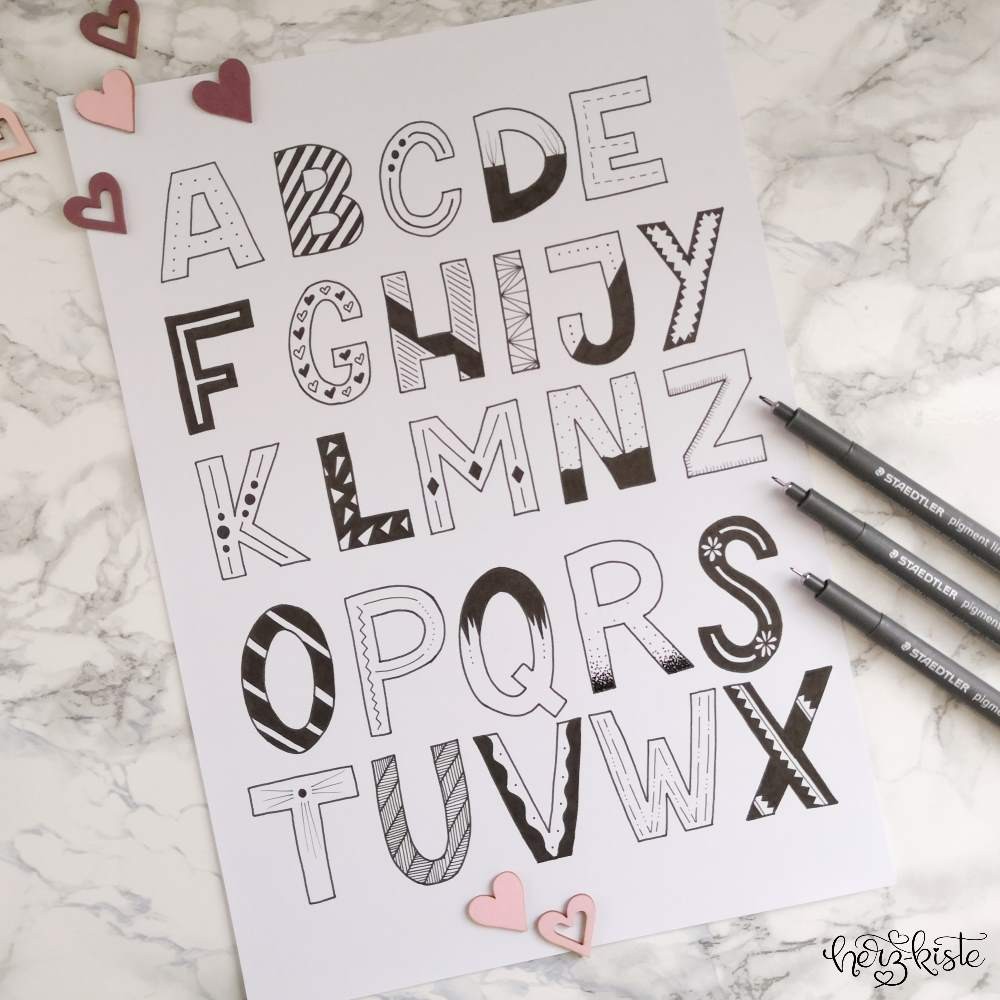 ABCDE
FGHIJY
KLMNZ
OPQRS
TUVWX
STAEDTLER pigment li
STAEDTLER pigmen
STAEDTLER pigme
herz-kiste